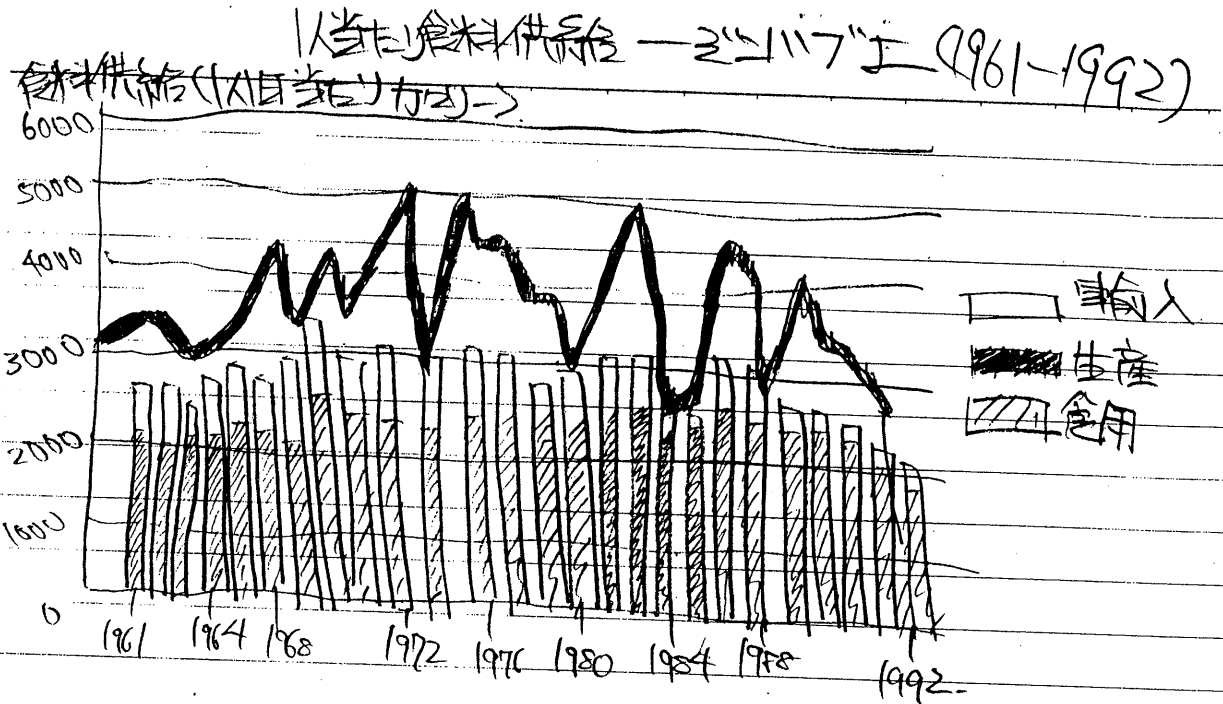 1人当たり食料供給 ージンバブエ (1961-1992)
食料供給(1人1日当たりカロリー)
6000
5000
4000
3000
2000
1000
0
輸入
生産
食用
1961 1964 1968 1972 1976 1980 1984 1988 1992